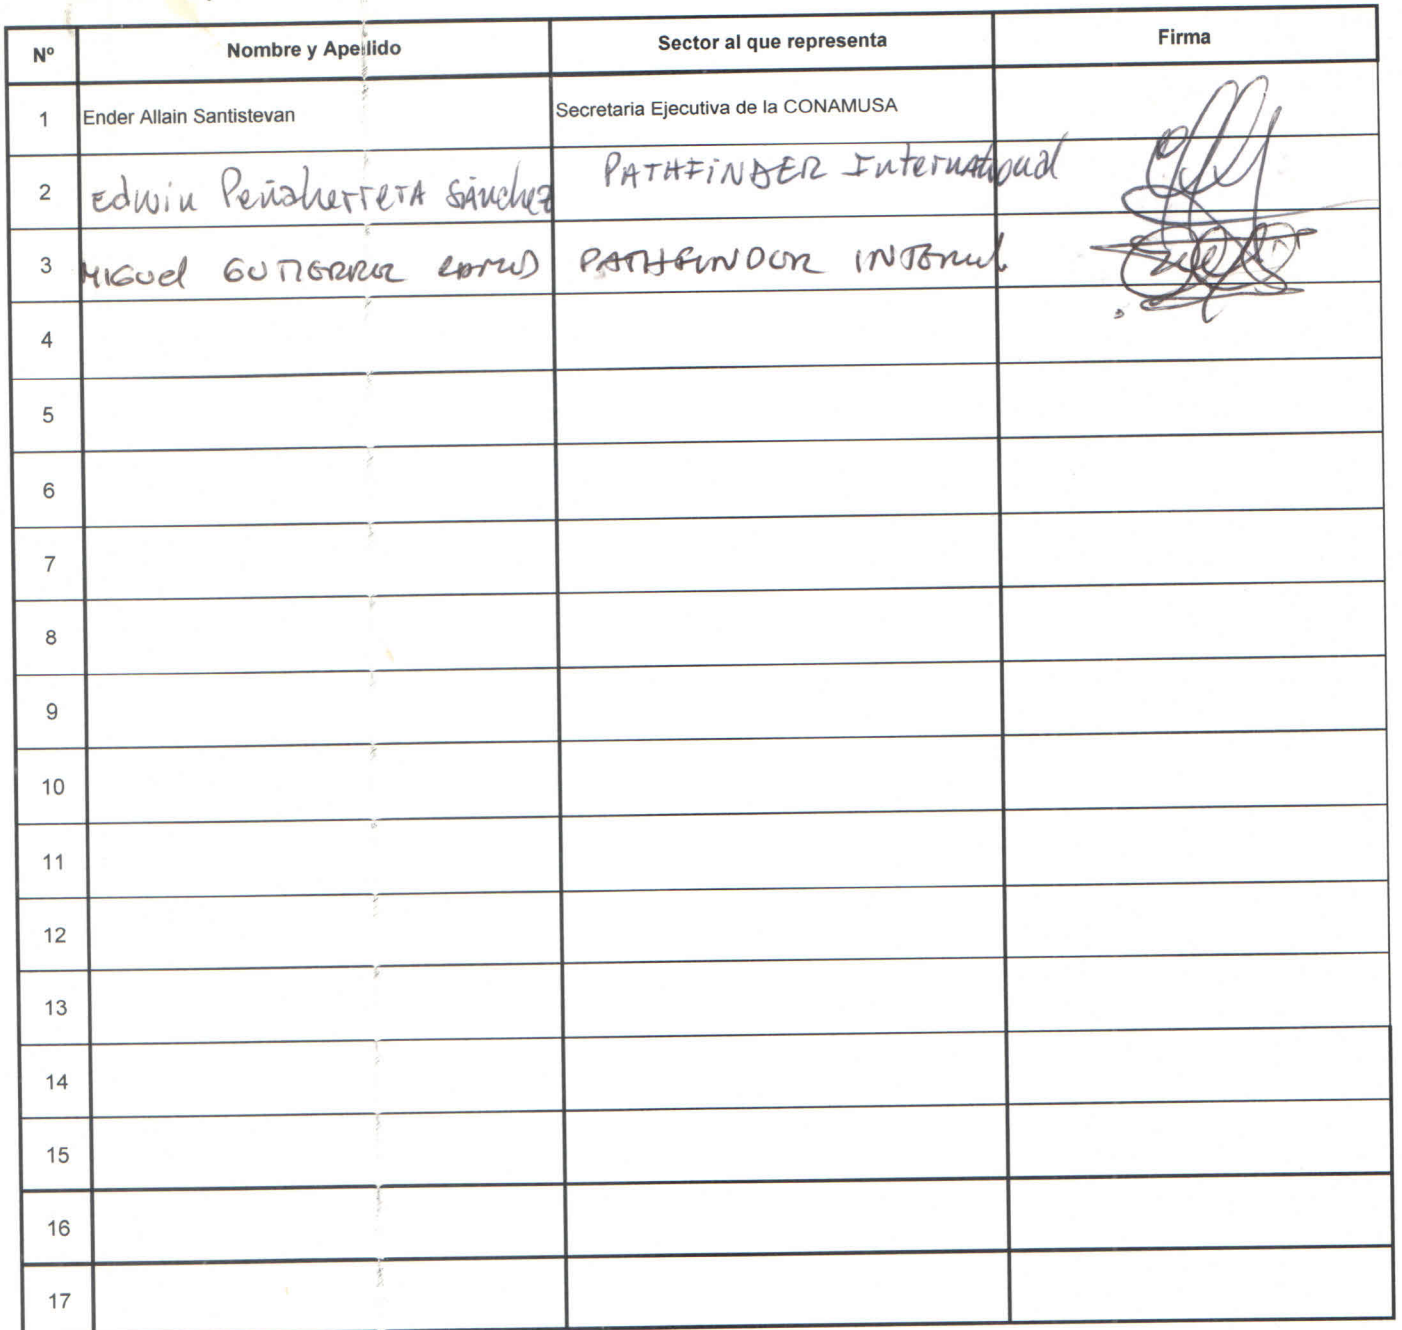 Nº Nombre y Apellido Sector al que representa Firma
1 Ender Allain Santistevan Secretaria Ejecutiva de la CONAMUSA
2 Edwin Peñaherrera Sánchez PATHFINDER International
3 MIGUel GUTIERREZ PATHFINDER INTERNL.
4
5
6
7
8
9
10
11
12
13
14
15
16
17